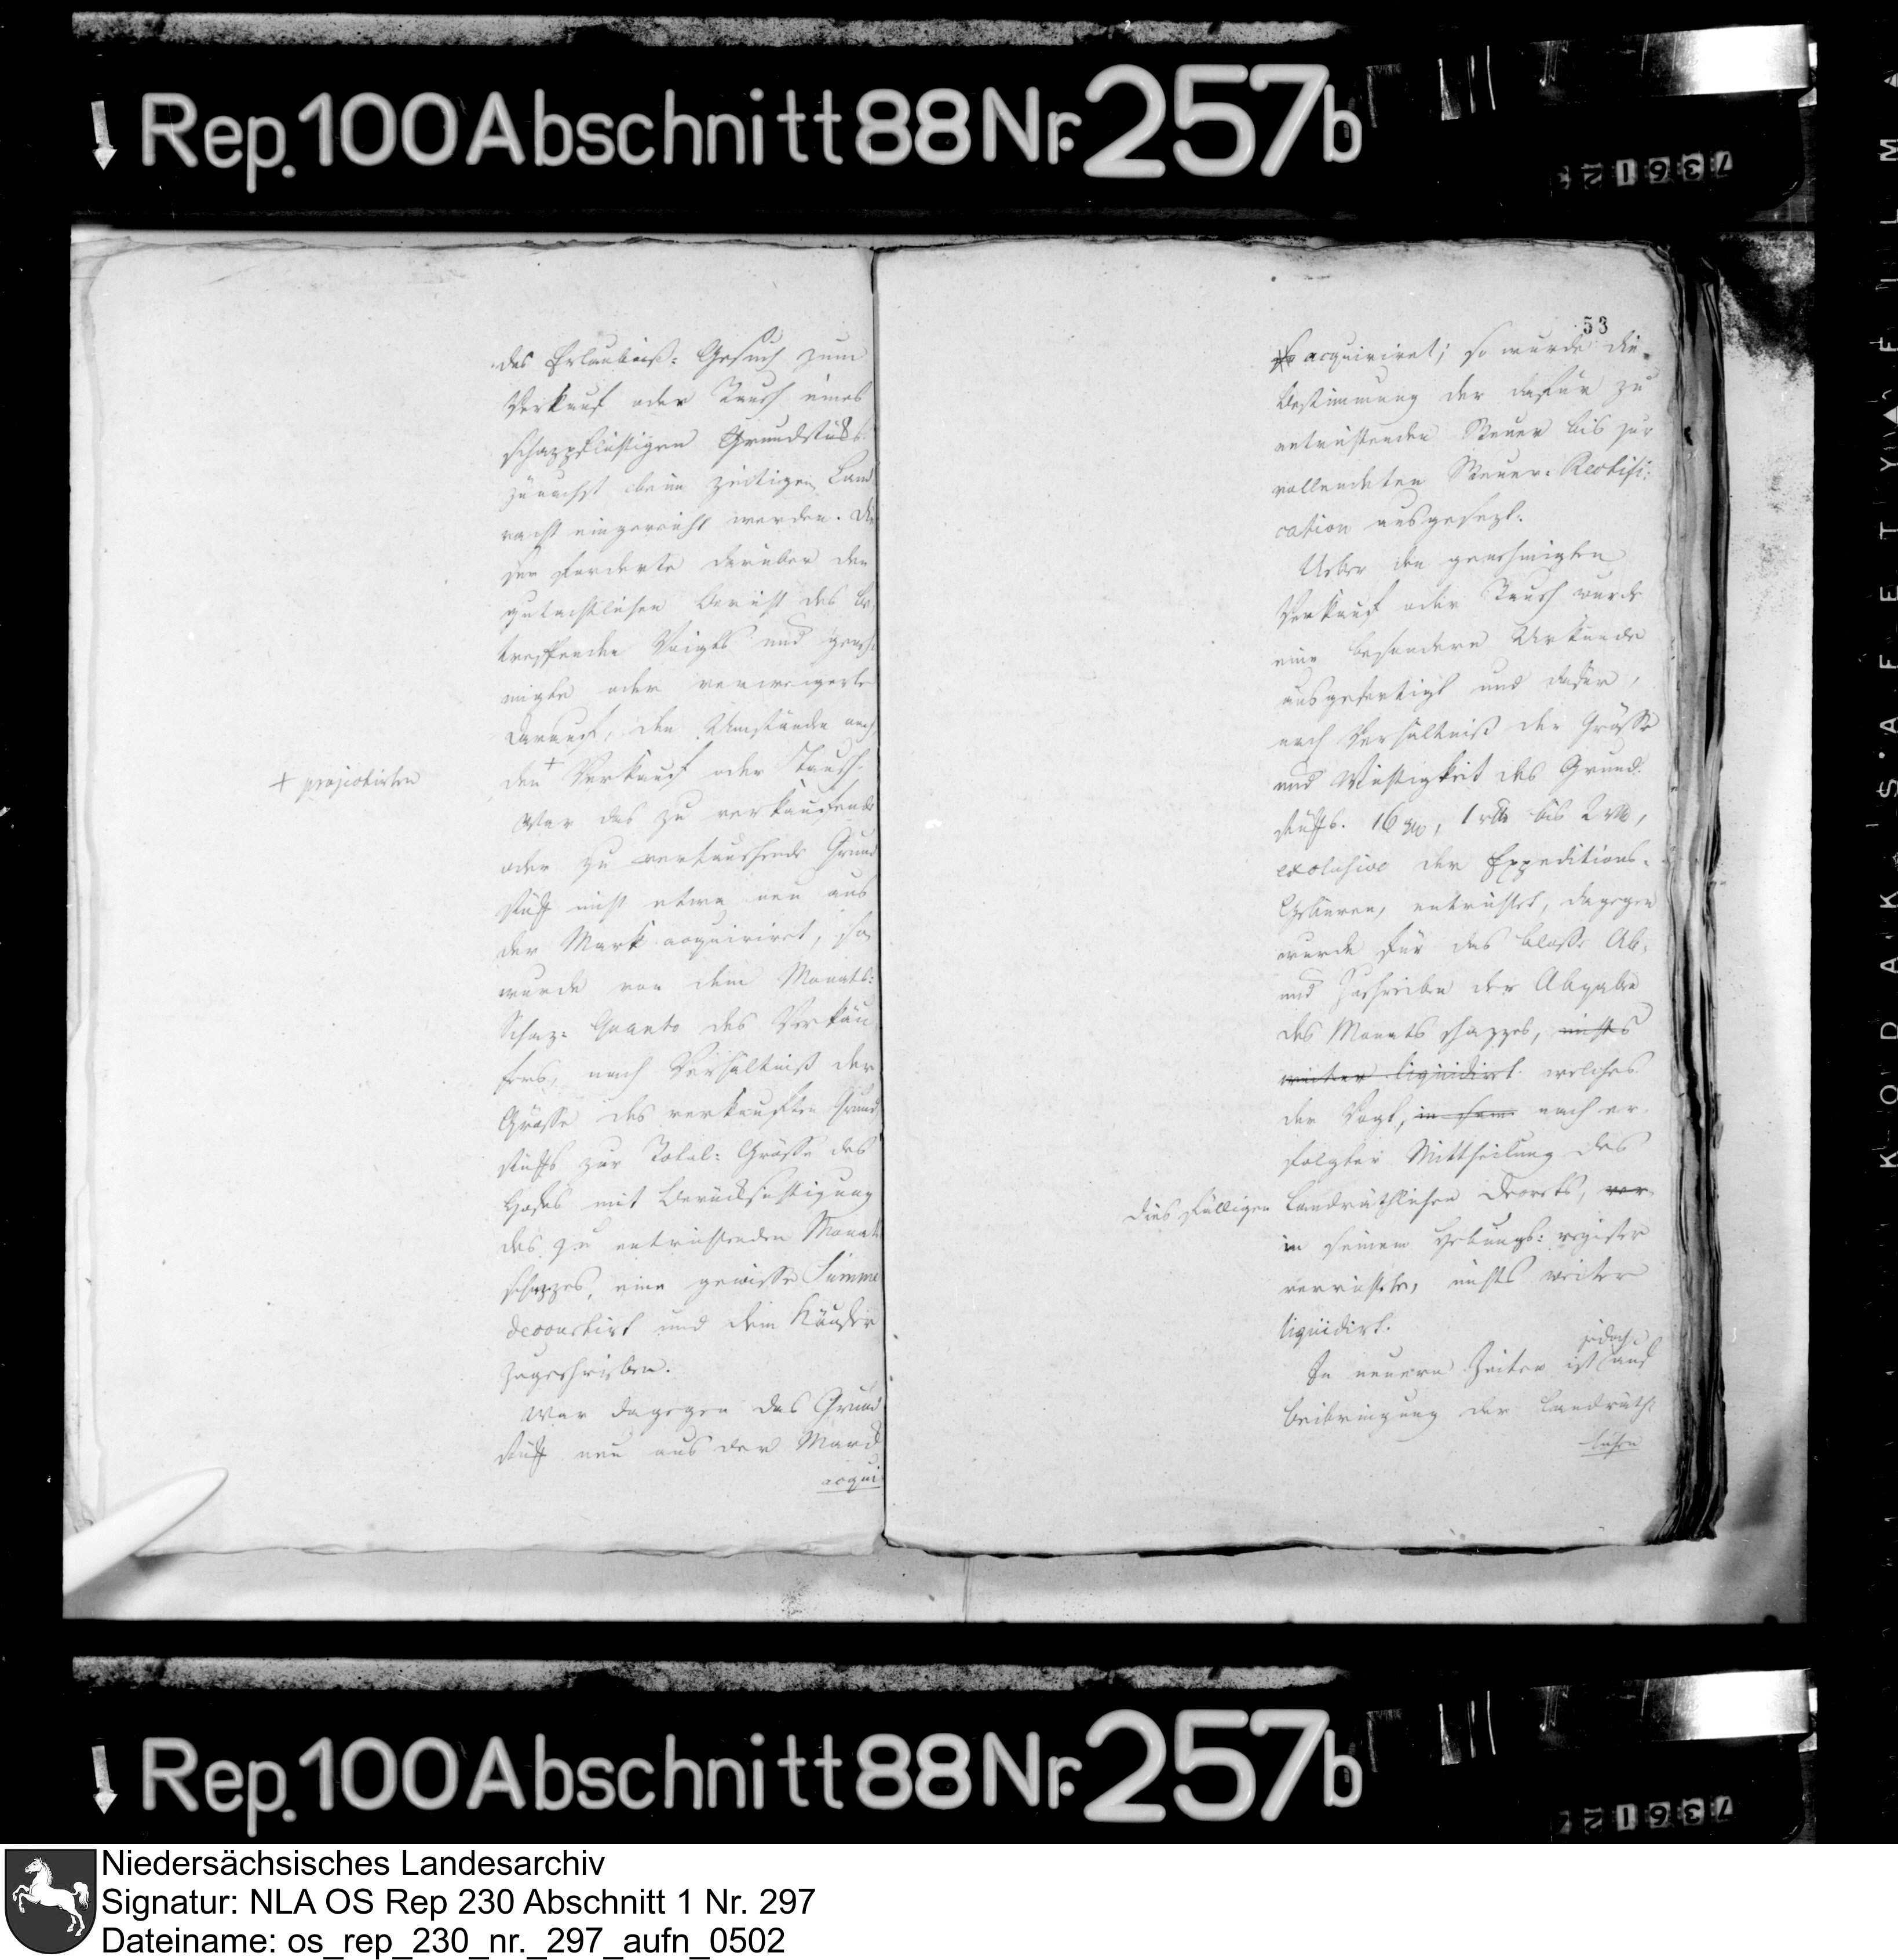 Rep. 100 Abschnitt 88 Nr. 257b
73612
das Erlaubniß: Gesuch zum
Verkauf oder Tausch eines
schazpflichtigen Grundstücks
zunächst beim zeitigen Land
racht eingereicht werden. Die
ser forderte darüber den
gutachtlichen Bericht des be
treffenden Voigts und geneh
migte oder verweigerte
darauf, den Umständen nach
den + Verkauf oder Tausch.
+ projectirten
War das zu verkaufende
oder zu vertauschende Grund
stück nicht etwa neu aus
der Mark acquiriret, so
wurde von dem Monats:
Schaz: Quanto des Verkäu
fers, nach Verhältniß der
Grösse des verkauften Grund
stücks zur Total: Grösse des
Hofes mit Berücksichtigung
des zu entrichtenden Monat
schazzes, eine gewisse Summe
decourtirt und dem Käufer
zugeschrieben.
War dagegen das Grund
stück neu aus der Marck
acqui
53
acquiriret; so wurde die
Bestimmung der dafür zu
entrichtenden Steuer bis zur
vollendeten Steuer: Rectifi:
cation ausgesezt.
Ueber den genehmigten
Verkauf oder Tausch wurde
eine besondere Urkunde
ausgefertigt und dafür,
nach Verhältniß der Grösse
und Wichtigkeit des Grund.
stücks. 16 ggr, 1 rth bis 2 rth,
exclusive der Expeditions-
Gebüren, entrichtet, dagegen
wurde für das blosse Ab-
und Zuschreiben der Abgabe
des Monatsschazzes, nichts
weiter liquidirt welches
der Vogt, in sein nach er-
folgter Mittheilung des
dies fälligen Landräthlichen Decrets, ver
in seinem Hebungs: register
verrichtete, nichts weiter
liquidirt.
In neuern Zeiten ist jedoch auf
Beibringung der Landräth:
lichen
Rep. 100 Abschnitt 88 Nr. 257b
73612
Niedersächsisches Landesarchiv
Signatur: NLA OS Rep 230 Abschnitt 1 Nr. 297
Dateiname: os_rep_230_nr._297_aufn_0502